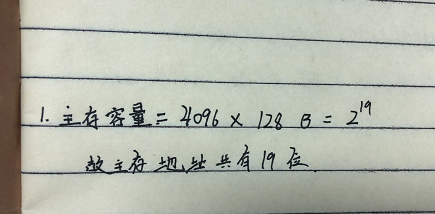 1. 主存容量 = 4096 × 128 B = 2¹⁹
故主存地址共有19位